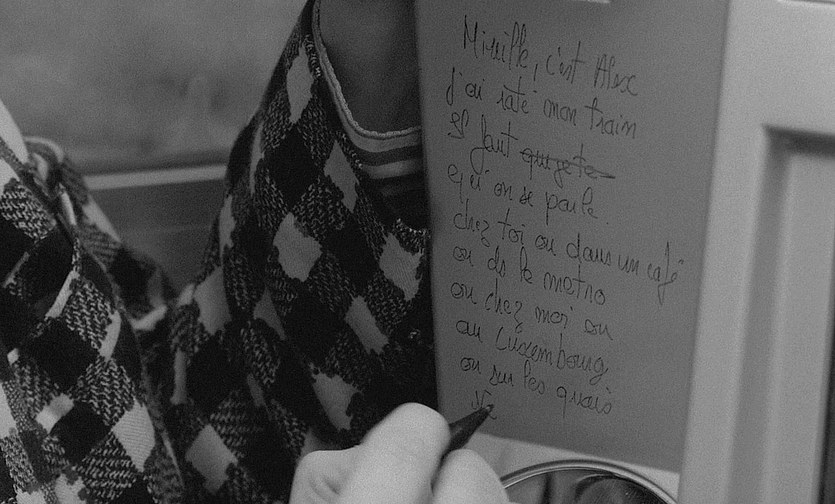 Mireille, c'est Alex
j'ai raté mon train
Il faut que je te
qu'on se parle.
chez toi ou dans un café
ou ds le metro
ou chez moi ou
au Luxembourg
ou sur les quais